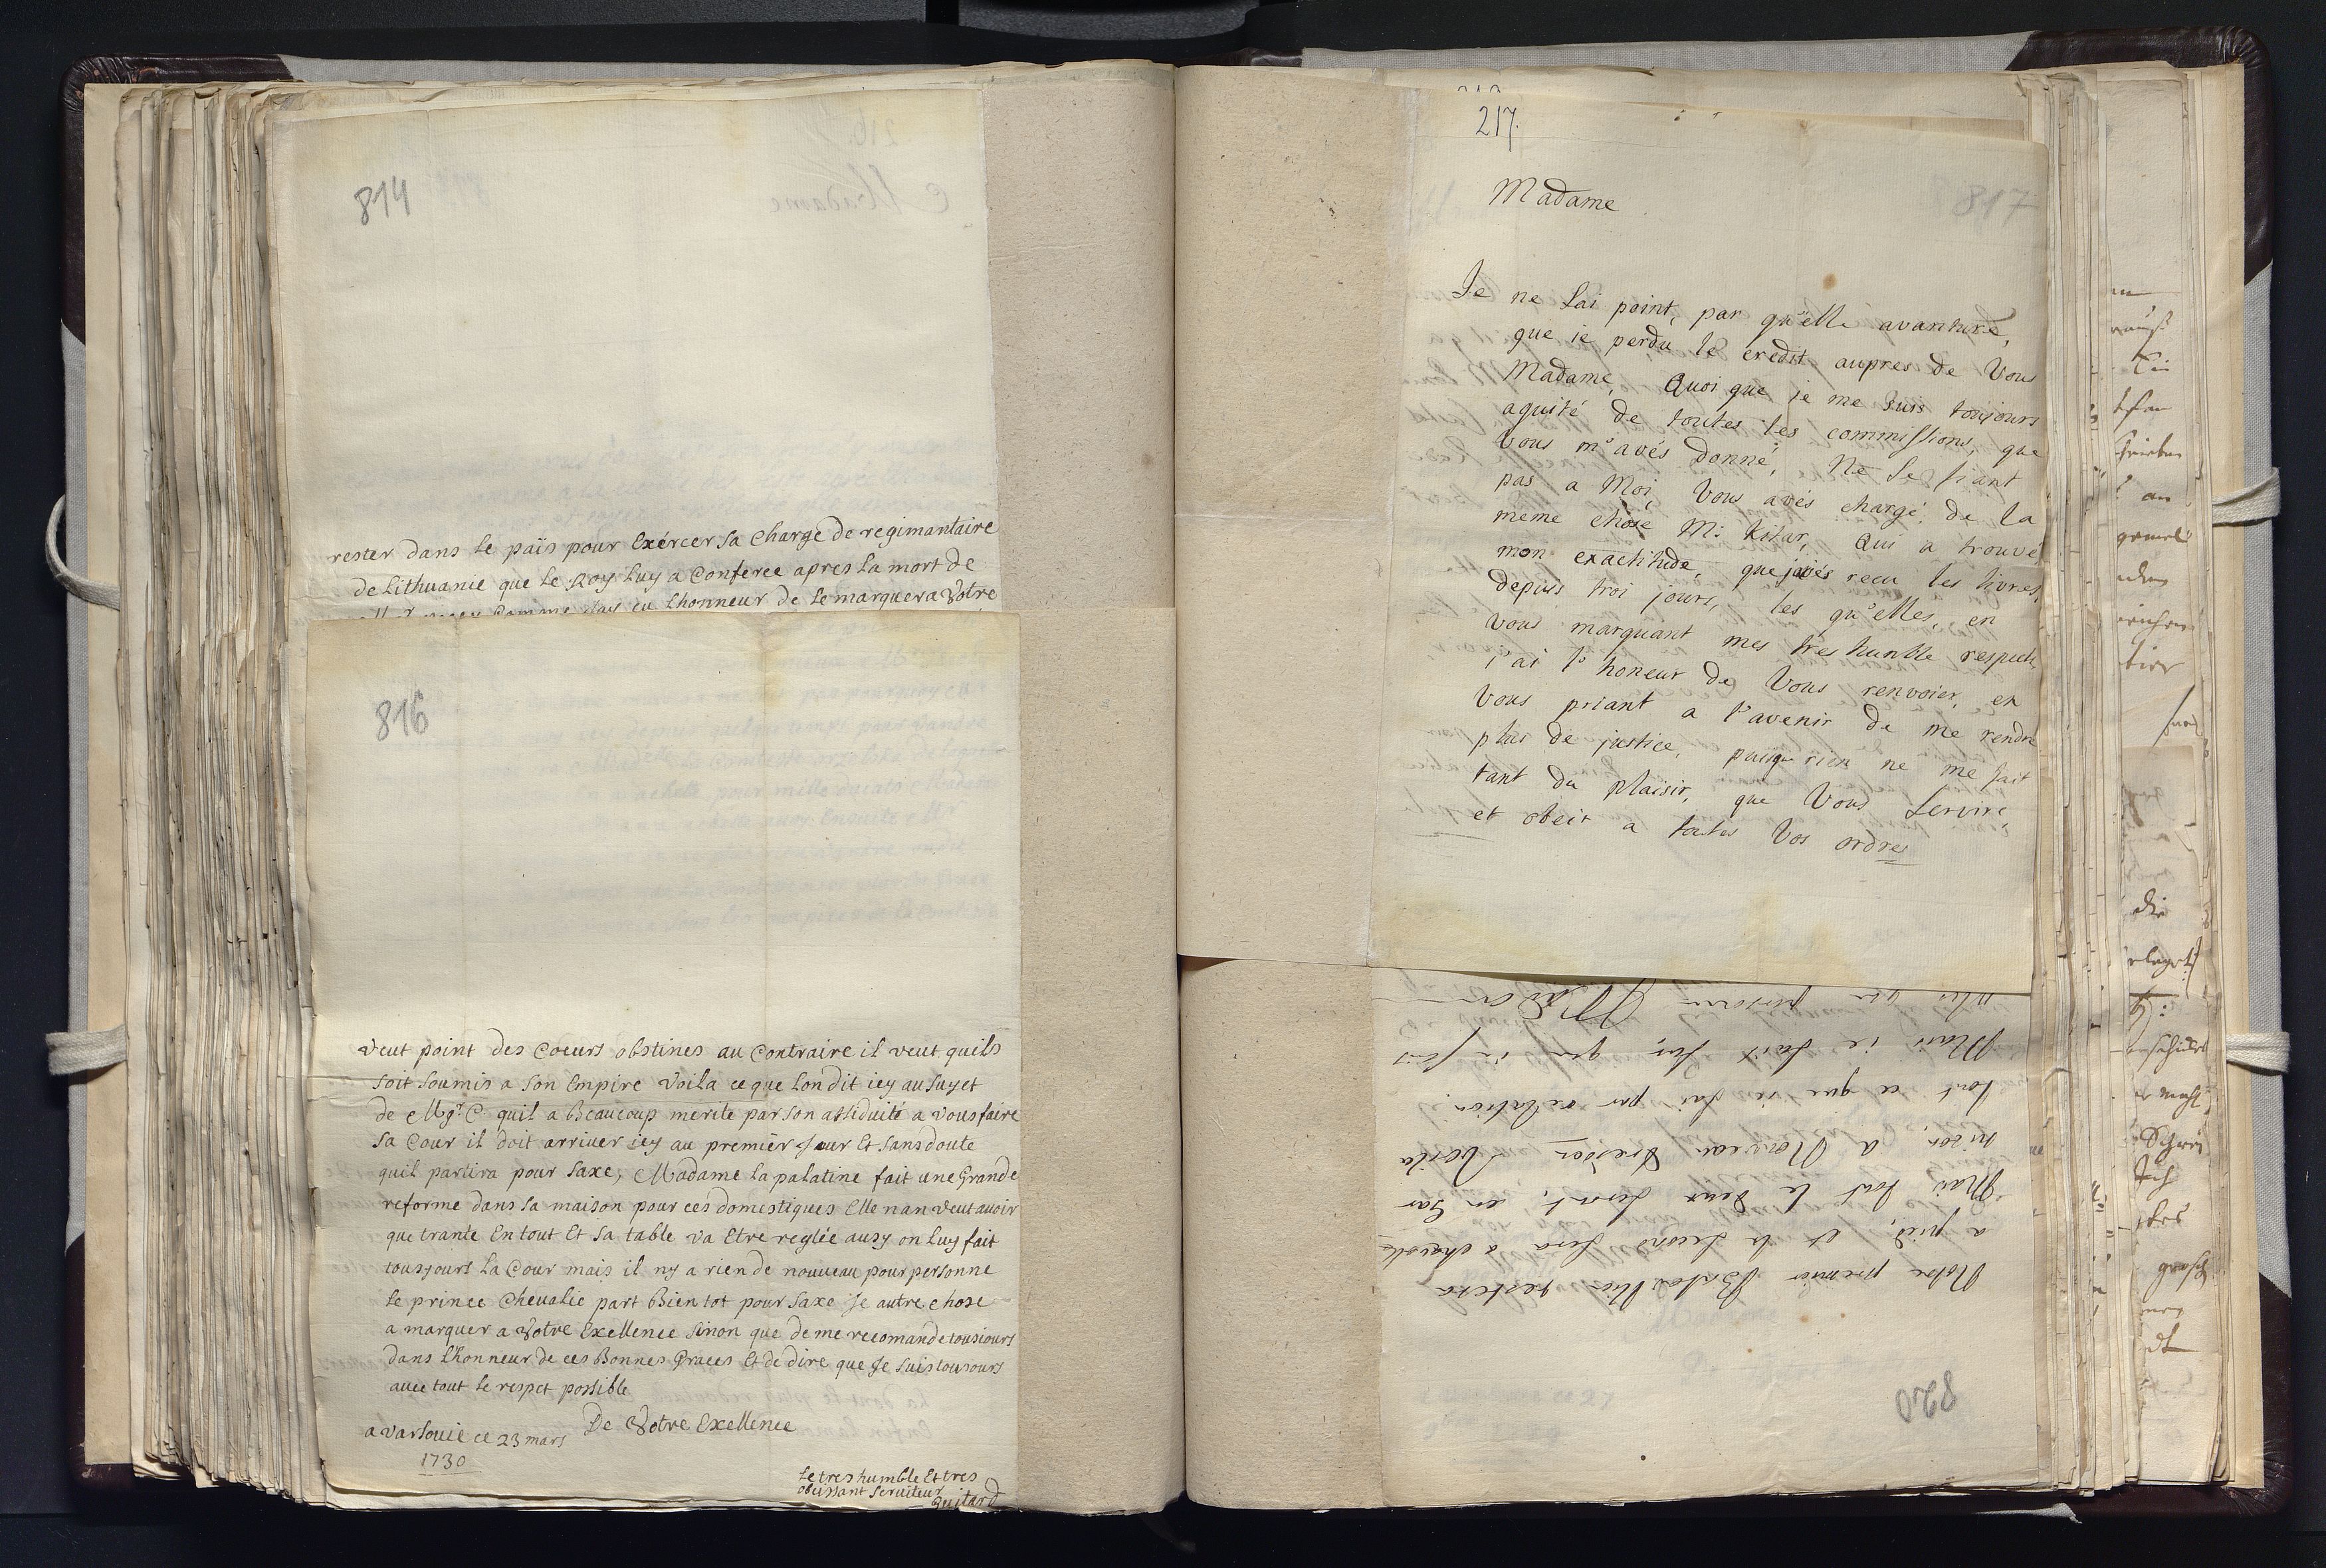 814
rester dans le païs pour Exércer sa Charge de regimantaire
de Lithuanie que le Roy luy a Conferee apres la mort de
Comme jay eu lhonneur de le marquer a Votre
816
veut point des Coeurs obstines au Contraire il veut quils
soit soumis a son Empire voila ce que lon dit icy au sujet
de Mgr. C. quil a Beaucoup merite par son assiduité a vous faire
sa Cour il doit arriver icy au premiēr Jour Et sans doute
quil partira pour Saxe, Madame la palatine fait une Grande
reforme dans sa maison pour ces domestiques Elle nan veut auoir
que trante En tout Et sa table va Etre reglée ausy on luy fait
tousjours la Cour mais il ny a rien de nouveau pour personne
le prince Chevalie part Bien tot pour Saxe Je autre chose
a marquer a Votre Exellence Sinon que de me recomande tousiours
dans lhonneur de ces Bonnes Graces Et de dire que Je suis tousours
avec tout le respet possible
De Votre Exellence
a varsouie ce 23 mars
1730
le tres humble Et tres
obeissant Serviteur
Quitard
217.
817
Madame
Je ne sai point, par qu'elle avanture,
que ie perdu le credit aupres de Vous
Madame, Quoi que je me suis toujours
aquité de toutes les commissions, que
Vous m'avés donné, Ne se fiant
pas a Moi, Vous avés chargé de la
meme chose M: Kitar, Qui a trouvé
mon exactitude, que j'avés recu les livres
depuis troi jours, les qu'elles, en
Vous marquant mes tres humble respects
j'ai l'honeur de Vous renvoier, en
Vous priant a l'avenir de me rendre
plus de justice, puisque rien ne me fait
tant du plaisir, que Vous Servire,
et obeir a toutes Vos ordres
820
Notre premier restera
a pied, et le second sera a
Mais tout le deux seront, en Gar
nison, a Nouveau Dresden Voila
tout ce que j'en sai par relation.
Mais ie sait sur, que ie suis